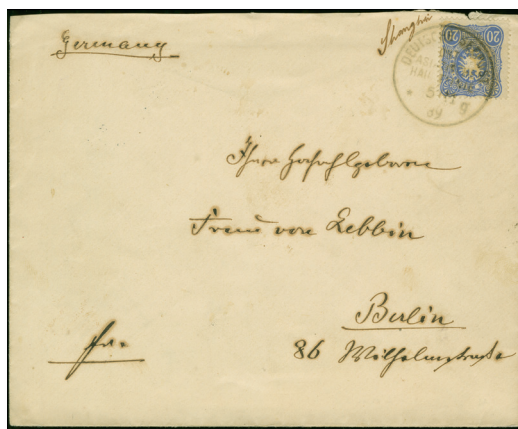 Germany
Shanghai
20 20
Ihrer Hochwohlgeboren
Frau von Lebbin
Berlin
fr.
86 Wilhelmstraße